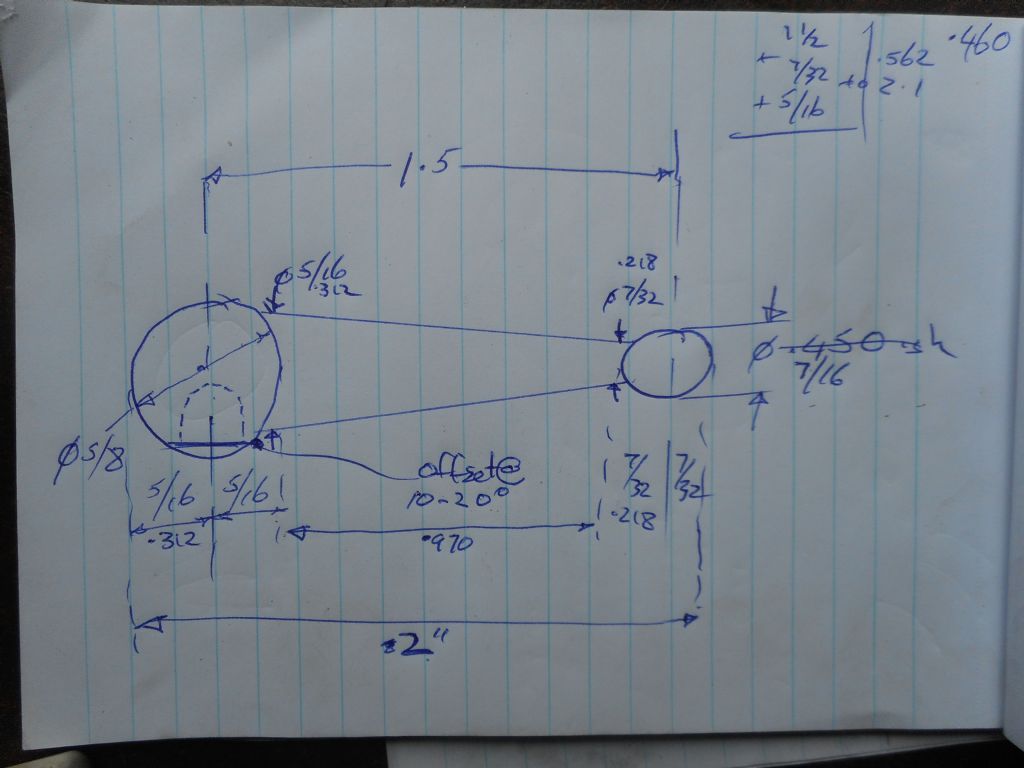 1 1/2
+ 7/32
+ 5/16
.562
+o 2.1
.460
1.5
ø 5/16
.312
.218
ø 7/32
ø .450
7/16
ø 5/8
offset@
10-20°
5/16
5/16
.312
.970
7/32
7/32
.218
2"